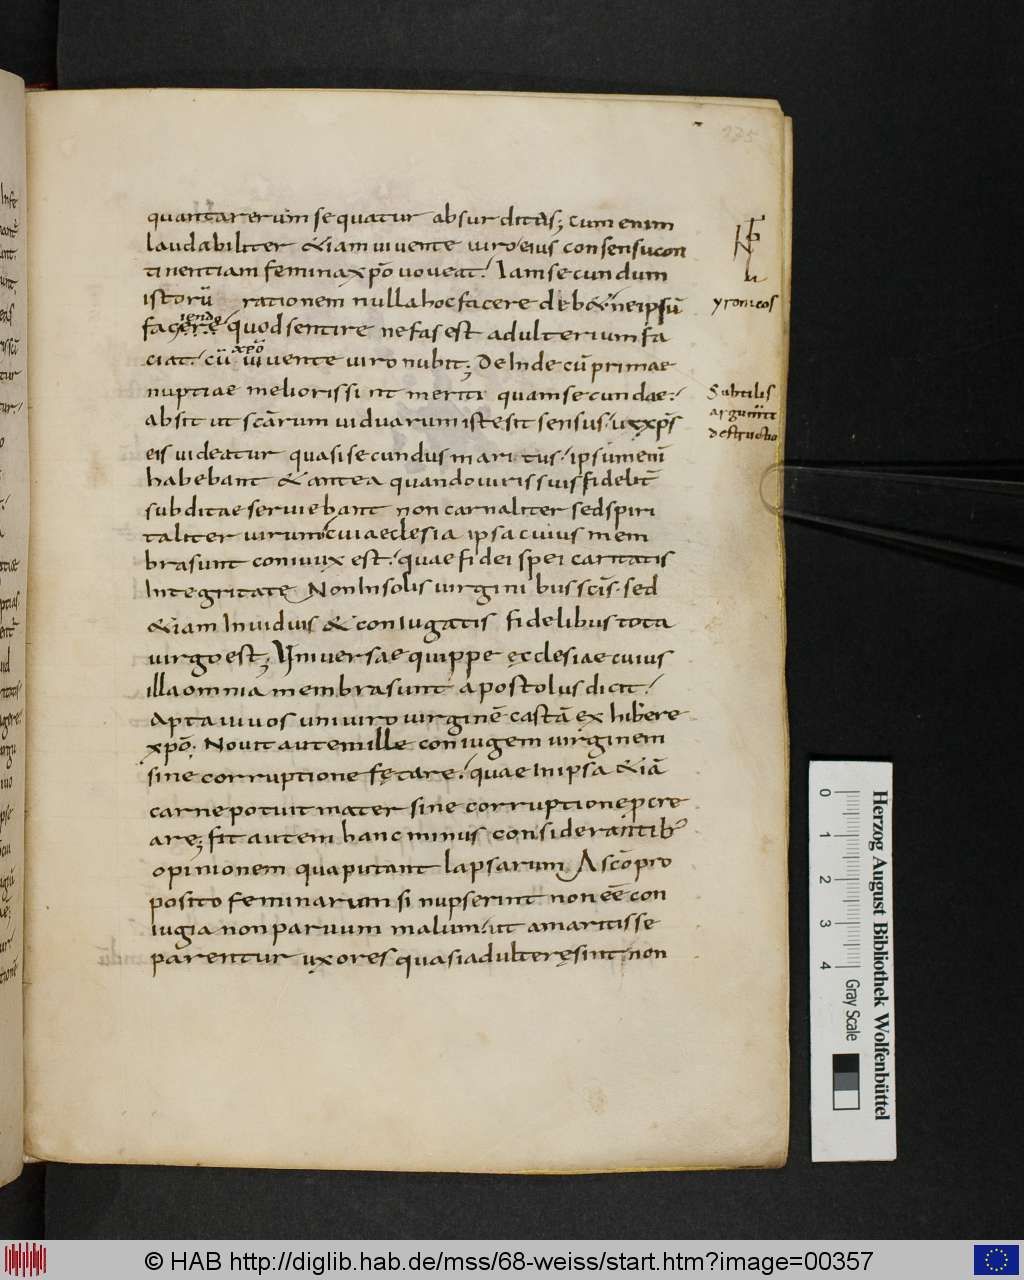 135
quantarerum sequatur absurditas; cum enim
laudabiliter &iam vivente viro eius consensu con
tinentiam femina xp̄o voveat. Iam secundum
istorū rationem nulla hoc facere deb&. ne ipsū
yronicos
facere iendo quod sentire nefas est adulterium fa
ciat. cū xp̄o vivente viro nubit; Deinde cū primae
nuptiae melioris sint meriti quam secundae.
Subtilis
argumti
destructio
absit ut scārum viduarum iste sit sensus. ut xp̄s
eis videatur quasi secundus maritus. ipsum enī
habebant & antea quando viris suis fidelit̄
subditae serviebant non carnaliter sed spiri
taliter virum. cui aeclesia ipsa cuius mem
bra sunt coniux est. quae fidei spei caritatis
Integritate Non In solis virginibus scīs. sed
&iam In viduis & coniugatis fidelibus tota
virgo est; Universae quippe ęcclesiae cuius
illa omnia membra sunt apostolus dicit.
Apta vi vos uni viro virginē castā exhibere
xp̄o. Novit autem ille coniugem virginem
sine corruptione fęcare. quae In ipsa &iā
carne potuit mater sine corruptione pcre
are; fit autem hanc minus considerantib;
opinionem qua putant lapsarum A scō pro
posito feminarum si nupserint non eē con
iugia non parvum malum. ut a maritis se
parentur uxores quasi adulterę sint. non
0 1 2 3 4
Gray Scale
Herzog August Bibliothek Wolfenbüttel
© HAB http://diglib.hab.de/mss/68-weiss/start.htm?image=00357